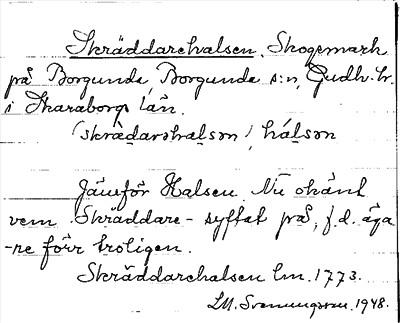 Skräddarehalsen, Skogsmark
på Borgunda, Borgunda s:n, Gudh. hr.
i Skaraborgs län.
(skrædarəhalsən), hálsən
Jämför Halsen. Nu okänt
vem Skräddare- syftat på, f.d. äga
-re förr troligen.
Skräddarehalsen lm. 1773.
LM. Svenungsson. 1948.